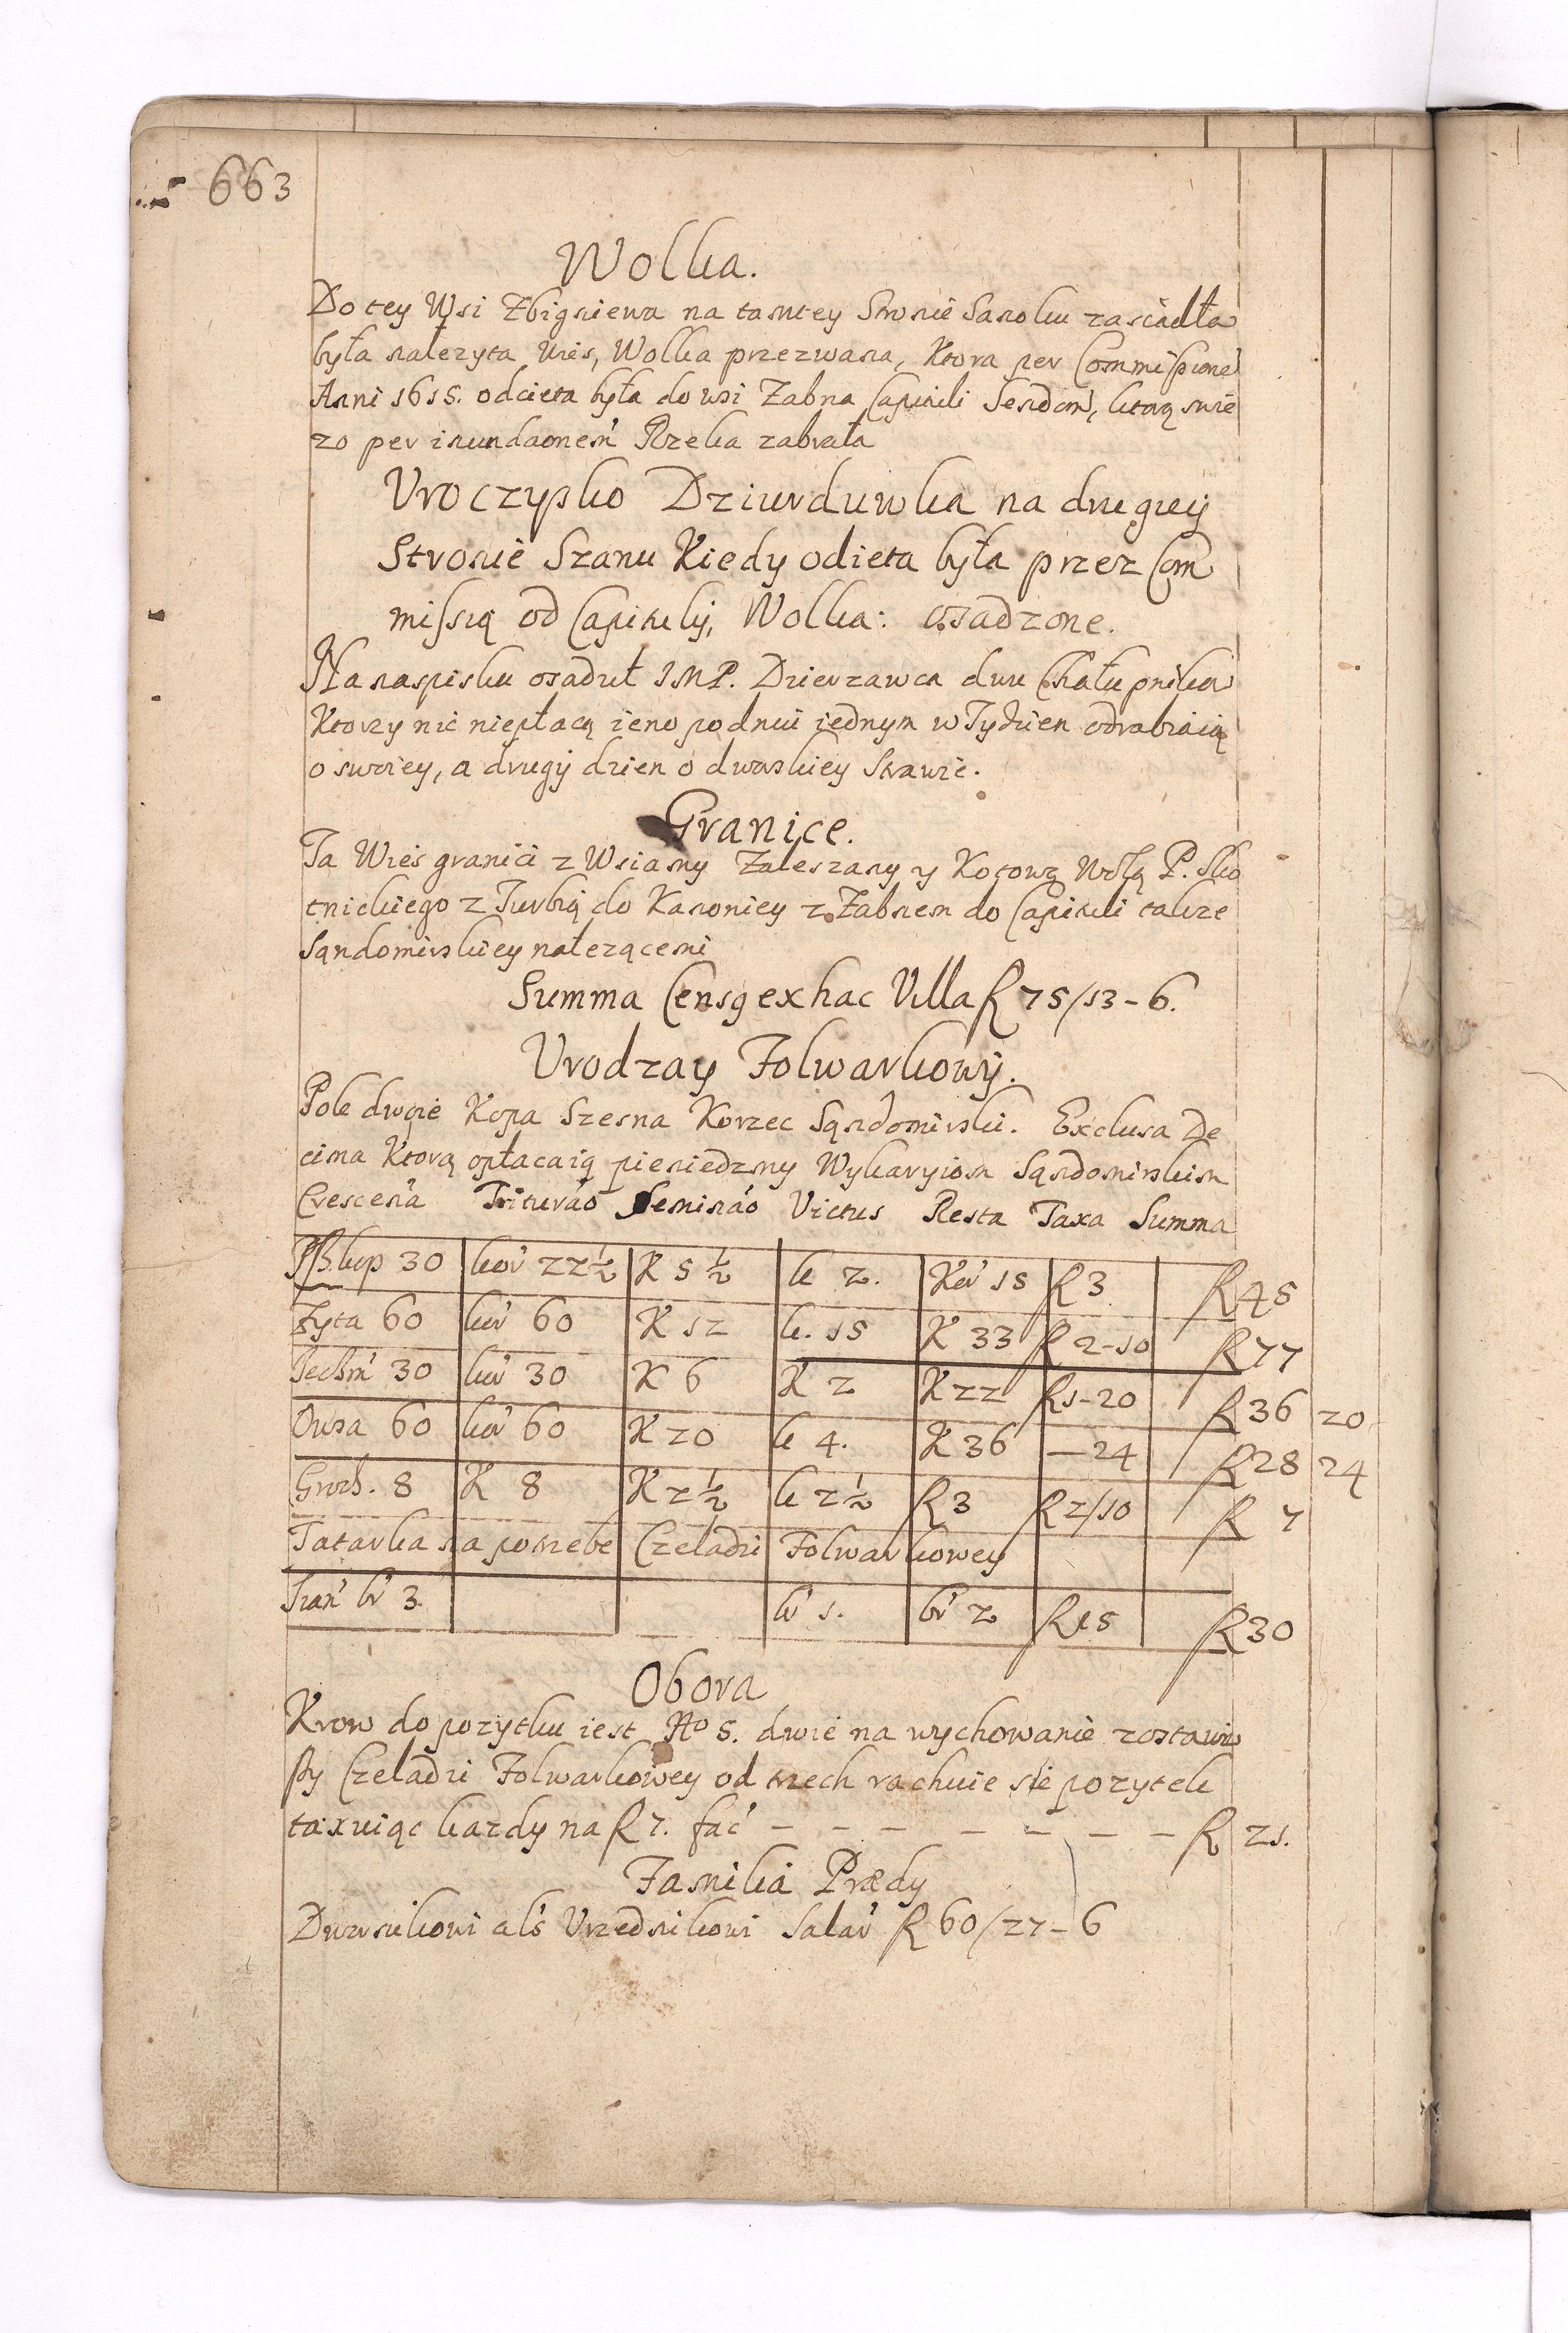 663
Wolka.
Do tey Wsi Zbigniewa na tamtey Stronie Sanoku zasiadła
była nalezyta Wies, Wolka przezwana, Ktora per Commissione
Anni 1615. odcieta była do wsi Zabna Capituli Sendom, ktorą swie
zo per inundaonem Rzeka zabrała
Uroczysko Dziurduwka na drugiey
Stronie Szanu Kiedy odieta była przez Com
missią od Capituly, Wolka: osadzone.
Na naspisku osaduł JMP. Dzierzawca dwu Chałupnikow
Ktorzy nic niepłacą ieno po dniu iednym w Tydzien odrabiaią
o swoiey, a drugÿ dzien o dworskiey Strawie.
Granice.
Ta Wieś granici z Wsiamy Zaleszany y Kotową P. Sko
tnickiego z Turbią do Kanoniey z Żabnem do Capituli takze
Sąndomirskiey nalezącemi
Summa Censg ex hac Villa R 75/13-6.
Urodzay Folwarkowÿ.
Pole dwoie Kopa Szesna Korzec Sąndomirski. Exclusa De
cima Ktorą opłacaią pieniedzmy Wykaryiom Sąndomirskim
Crescen'a Triturao Seminao Victus Resta Taxa Summa
Psz. kop 30 kor 22½ K 5½ k 2. Kor 15 R 3 R 45
Zyta 60 kor 60 K 12 k. 15 K 33 R 2-10 R 77
Jeczm 30 kor 30 K 6 K 2 K 22 R 1-20 R 36 20
Owsa 60 kor 60 K 20 k 4. K 36 — 24 R 28 24
Groch. 8 K 8 K 2½ k 2½ R 3 R 2/10 R 7
Tatarka na potrzebe Czeladzi Folwarkowey
Sian br 3 br 1. br 2 R 15 R 30
Obora
Krow do pozytku iest No 5. dwie na wychowanie zostawi
szy Czeladzi Folwarkowey od trzech rachuie sie pozytek
taxuiąc kazdy na R 7. fać — — — — — — — R 21.
Familia Prædy
Dwornikowi als Urzednikowi Salar R 60/27-6